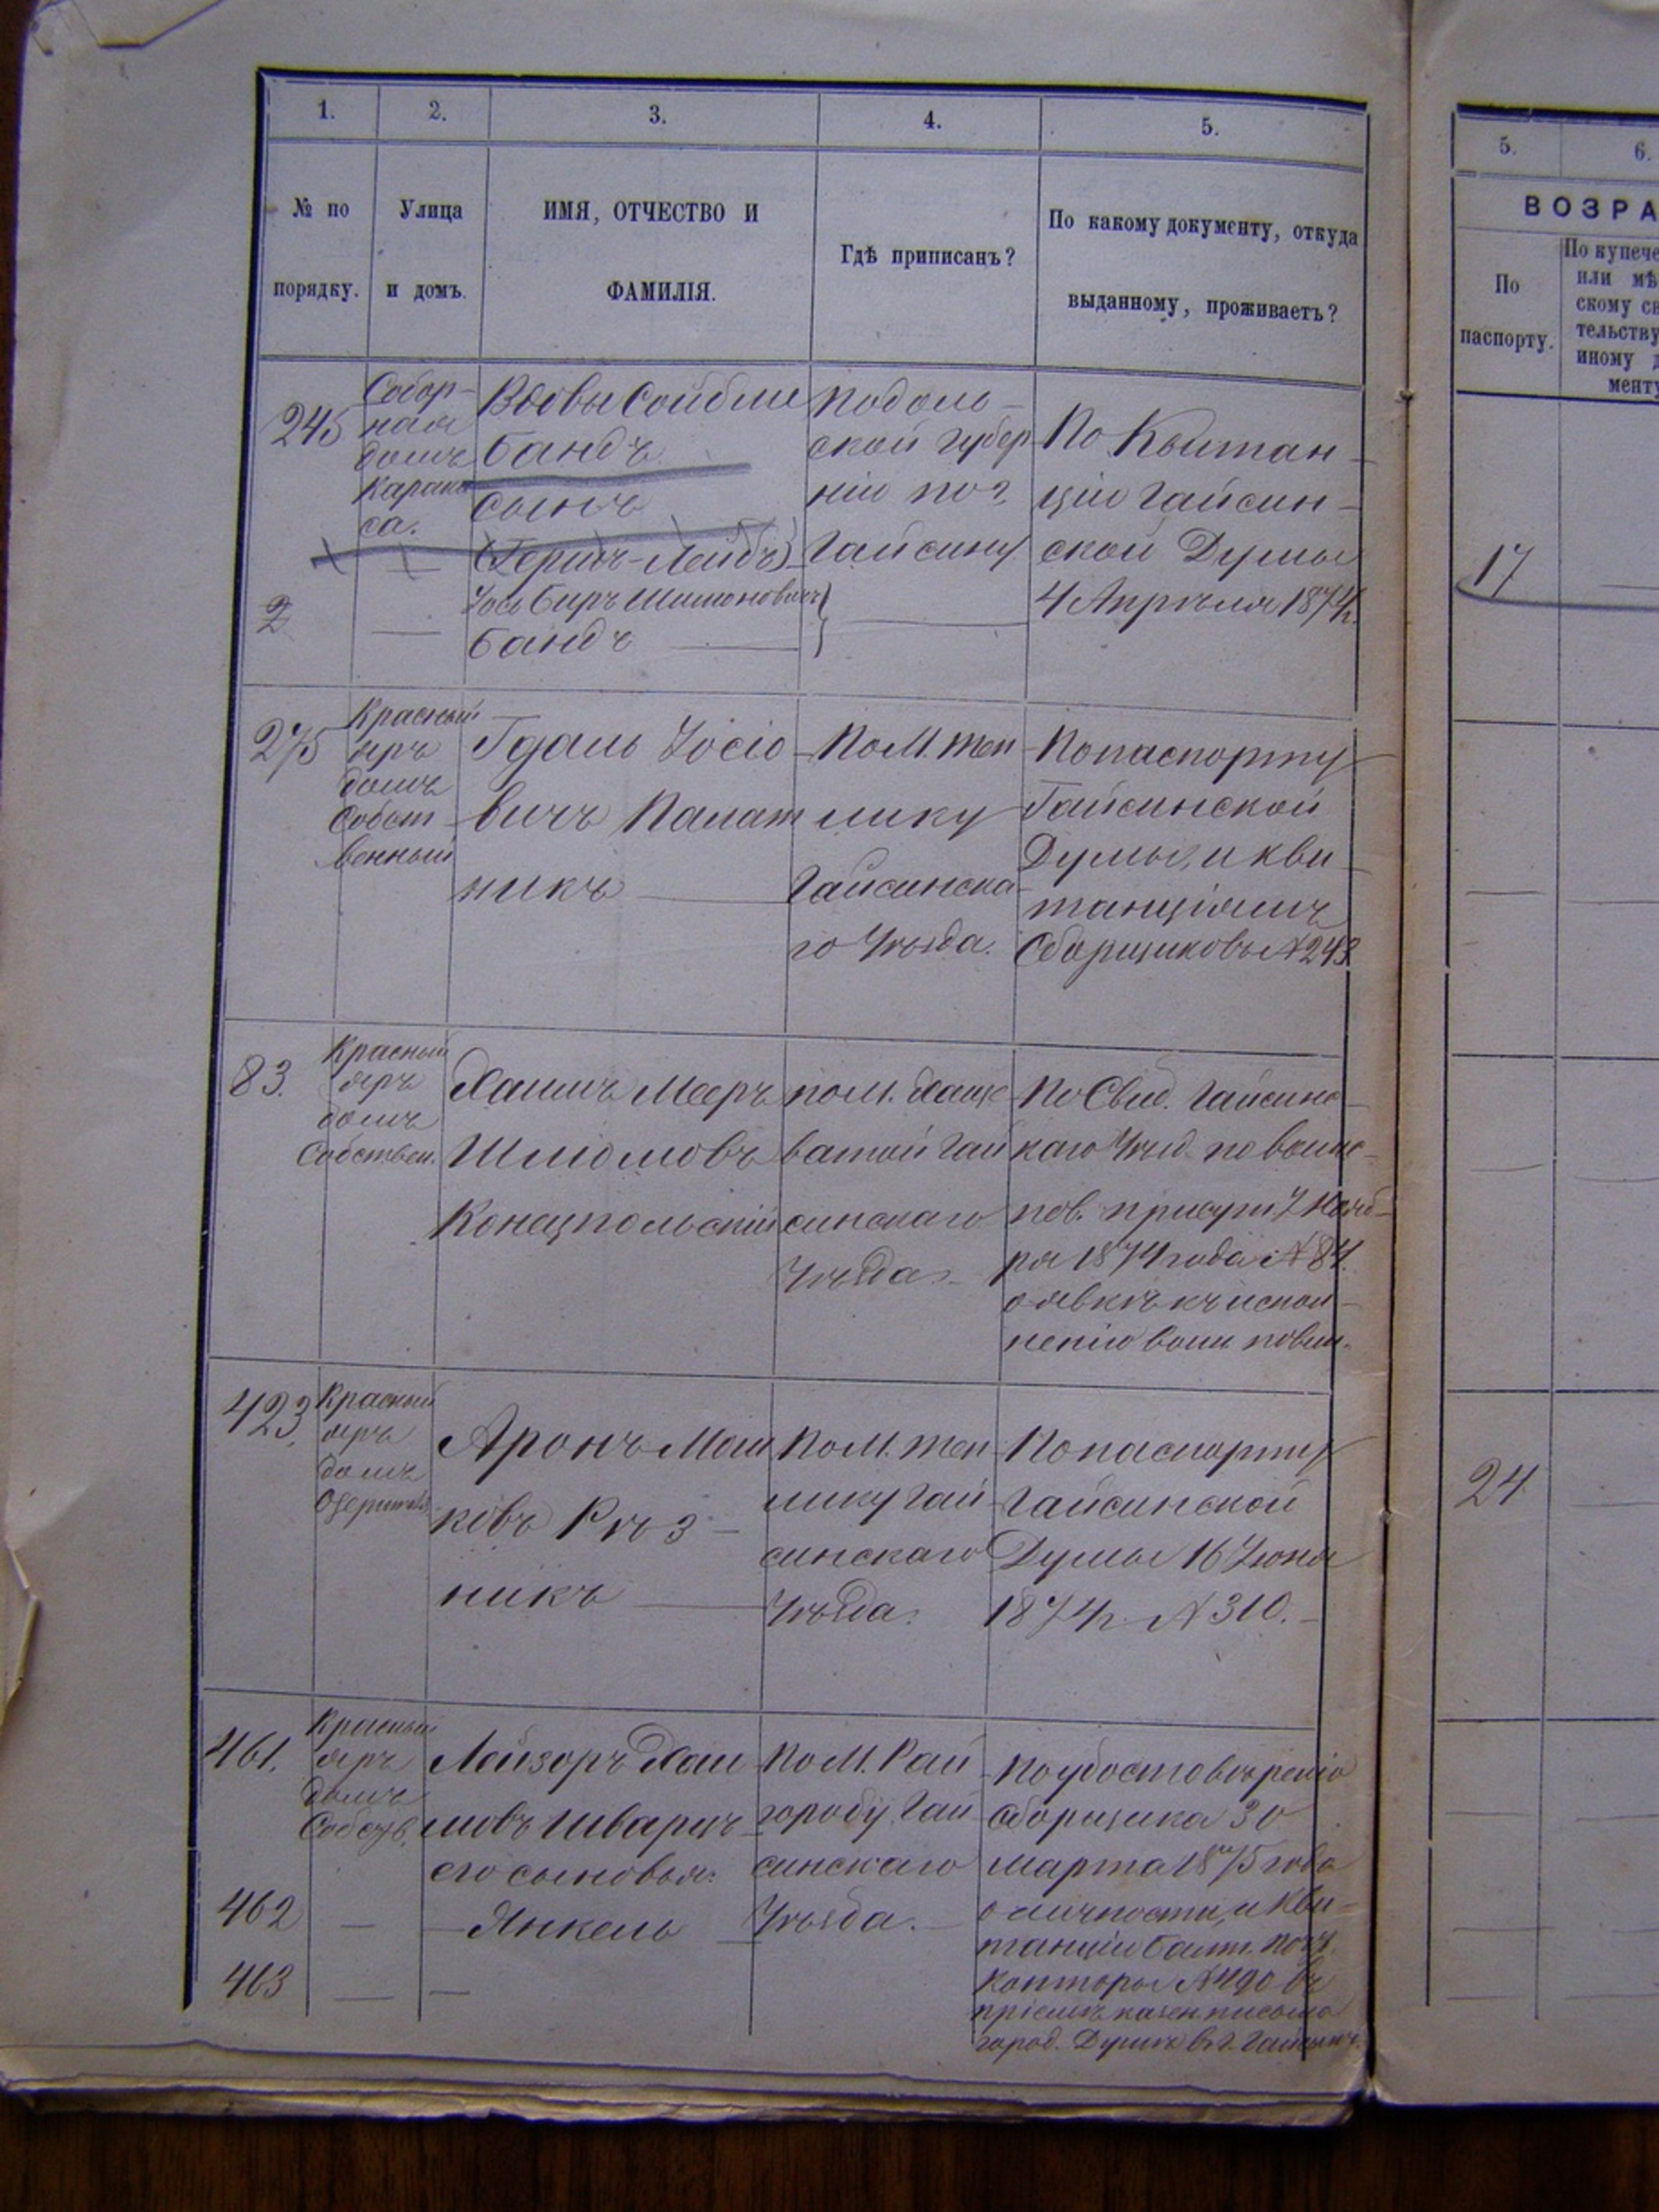 1. 2. 3. 4. 5.
№ по порядку.
Улица и домъ.
ИМЯ, ОТЧЕСТВО И ФАМИЛІЯ.
Гдѣ приписанъ?
По какому документу, откуда выданному, проживаетъ?
245
Собор-
ная
домъ
Карака
са.
Вдовы Сойбли
Бандъ
сынъ
(Гершъ-Лейбъ)
Іось Беръ Шимоновичъ
Бандъ
Подоль-
ской губер
ніи по г.
Гайсину
По Квитан-
ціи Гайсин-
ской Думы
4 Апрѣля 1874 г.
2
275
Красный
яръ
домъ
Собст
венный
Гдаль Іосіо-
вичъ Палат
никъ
По М. Теп
лику
Гайсинска-
го Уѣзда.
По паспорту
Гайсинской
Думы, и кви-
танціямъ
Сборщиковъ № 243
83.
Красный
яръ
домъ
Собствен.
Хаимъ Мееръ
Шліомовъ
Конецпольскій
по М. Хаще
ватой Гай
синскаго
Уѣзда.
По Свид. Гайсинс-
каго Уѣзд. по воинс-
пов. присут. 7 Нояб-
ря 1874 года № 84.
о явкѣ къ испол-
ненію воин. повин.
423.
Красный
яръ
домъ
Аронъ Мош
ковъ Рѣз-
никъ
По М. Теп
лику Гай-
синскаго
Уѣзда.
По паспорту
Гайсинской
Думы 16 Іюня
1874 г. № 310.
461.
Красный
яръ
домъ
Собств.
Лейзоръ Хаи
мовъ Шварцъ
его сыновья:
По М. Рай
городу Гай
синскаго
Уѣзда.
По удостовѣренію
сборщика 30
Марта 1875 года
о личности, и кви-
танціи Балт. Почт.
Конторы № 490 въ
пріемѣ казен. письма
город. Думѣ в г. Гайсинъ.
462
Янкель
463
5. 6.
ВОЗРА
По
паспорту.
По купече
или мѣ
скому св
тельству
иному д
менту
17
24